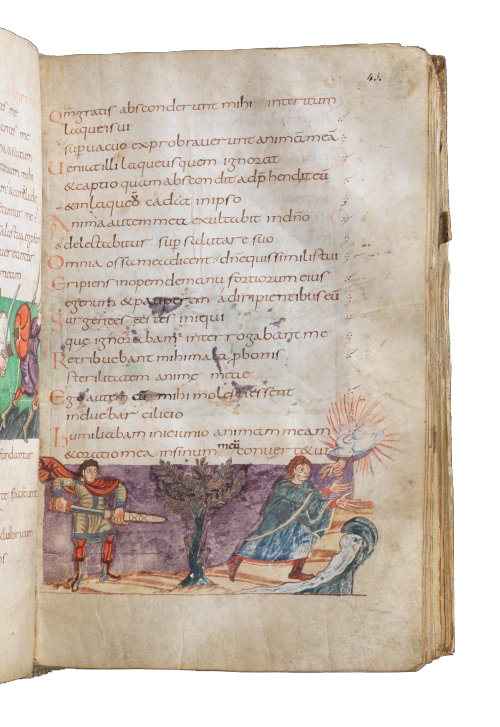 45.
Qm̄ gratis absconderunt mihi interitum
laquei sui
sup̄uacuo exprobraverunt animā meā
Veniat illi laqueus quem ignorat
& captio quam abscondit adp̄hendat eū
& in laqueo cadat in ipso
Anima autem mea exultabit in dn̄o
& delectabitur sup̄ salutare suo
Omnia ossa mea dicent dn̄e quis similis tui
Eripiens inopem de manu fortiorum eius
egenum & pauperem a diripientibus eū
Surgentes testes iniqui
que ignorabam interrogabant me
Retribuebant mihi mala p̄ bonis
sterilitatem anime meae
Ego autem cum mihi molesti essent
induebar cilicio
humiliabam in ieiunio animam meam
& oratio mea in sinum meū